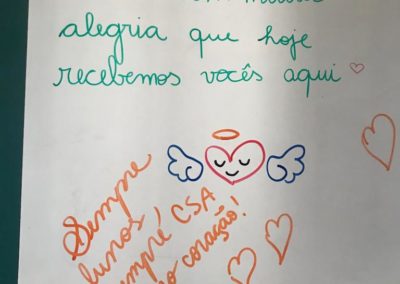 alegria que hoje
recebemos vocês aqui
Sempre
lunos,
empre CSA
no coração!